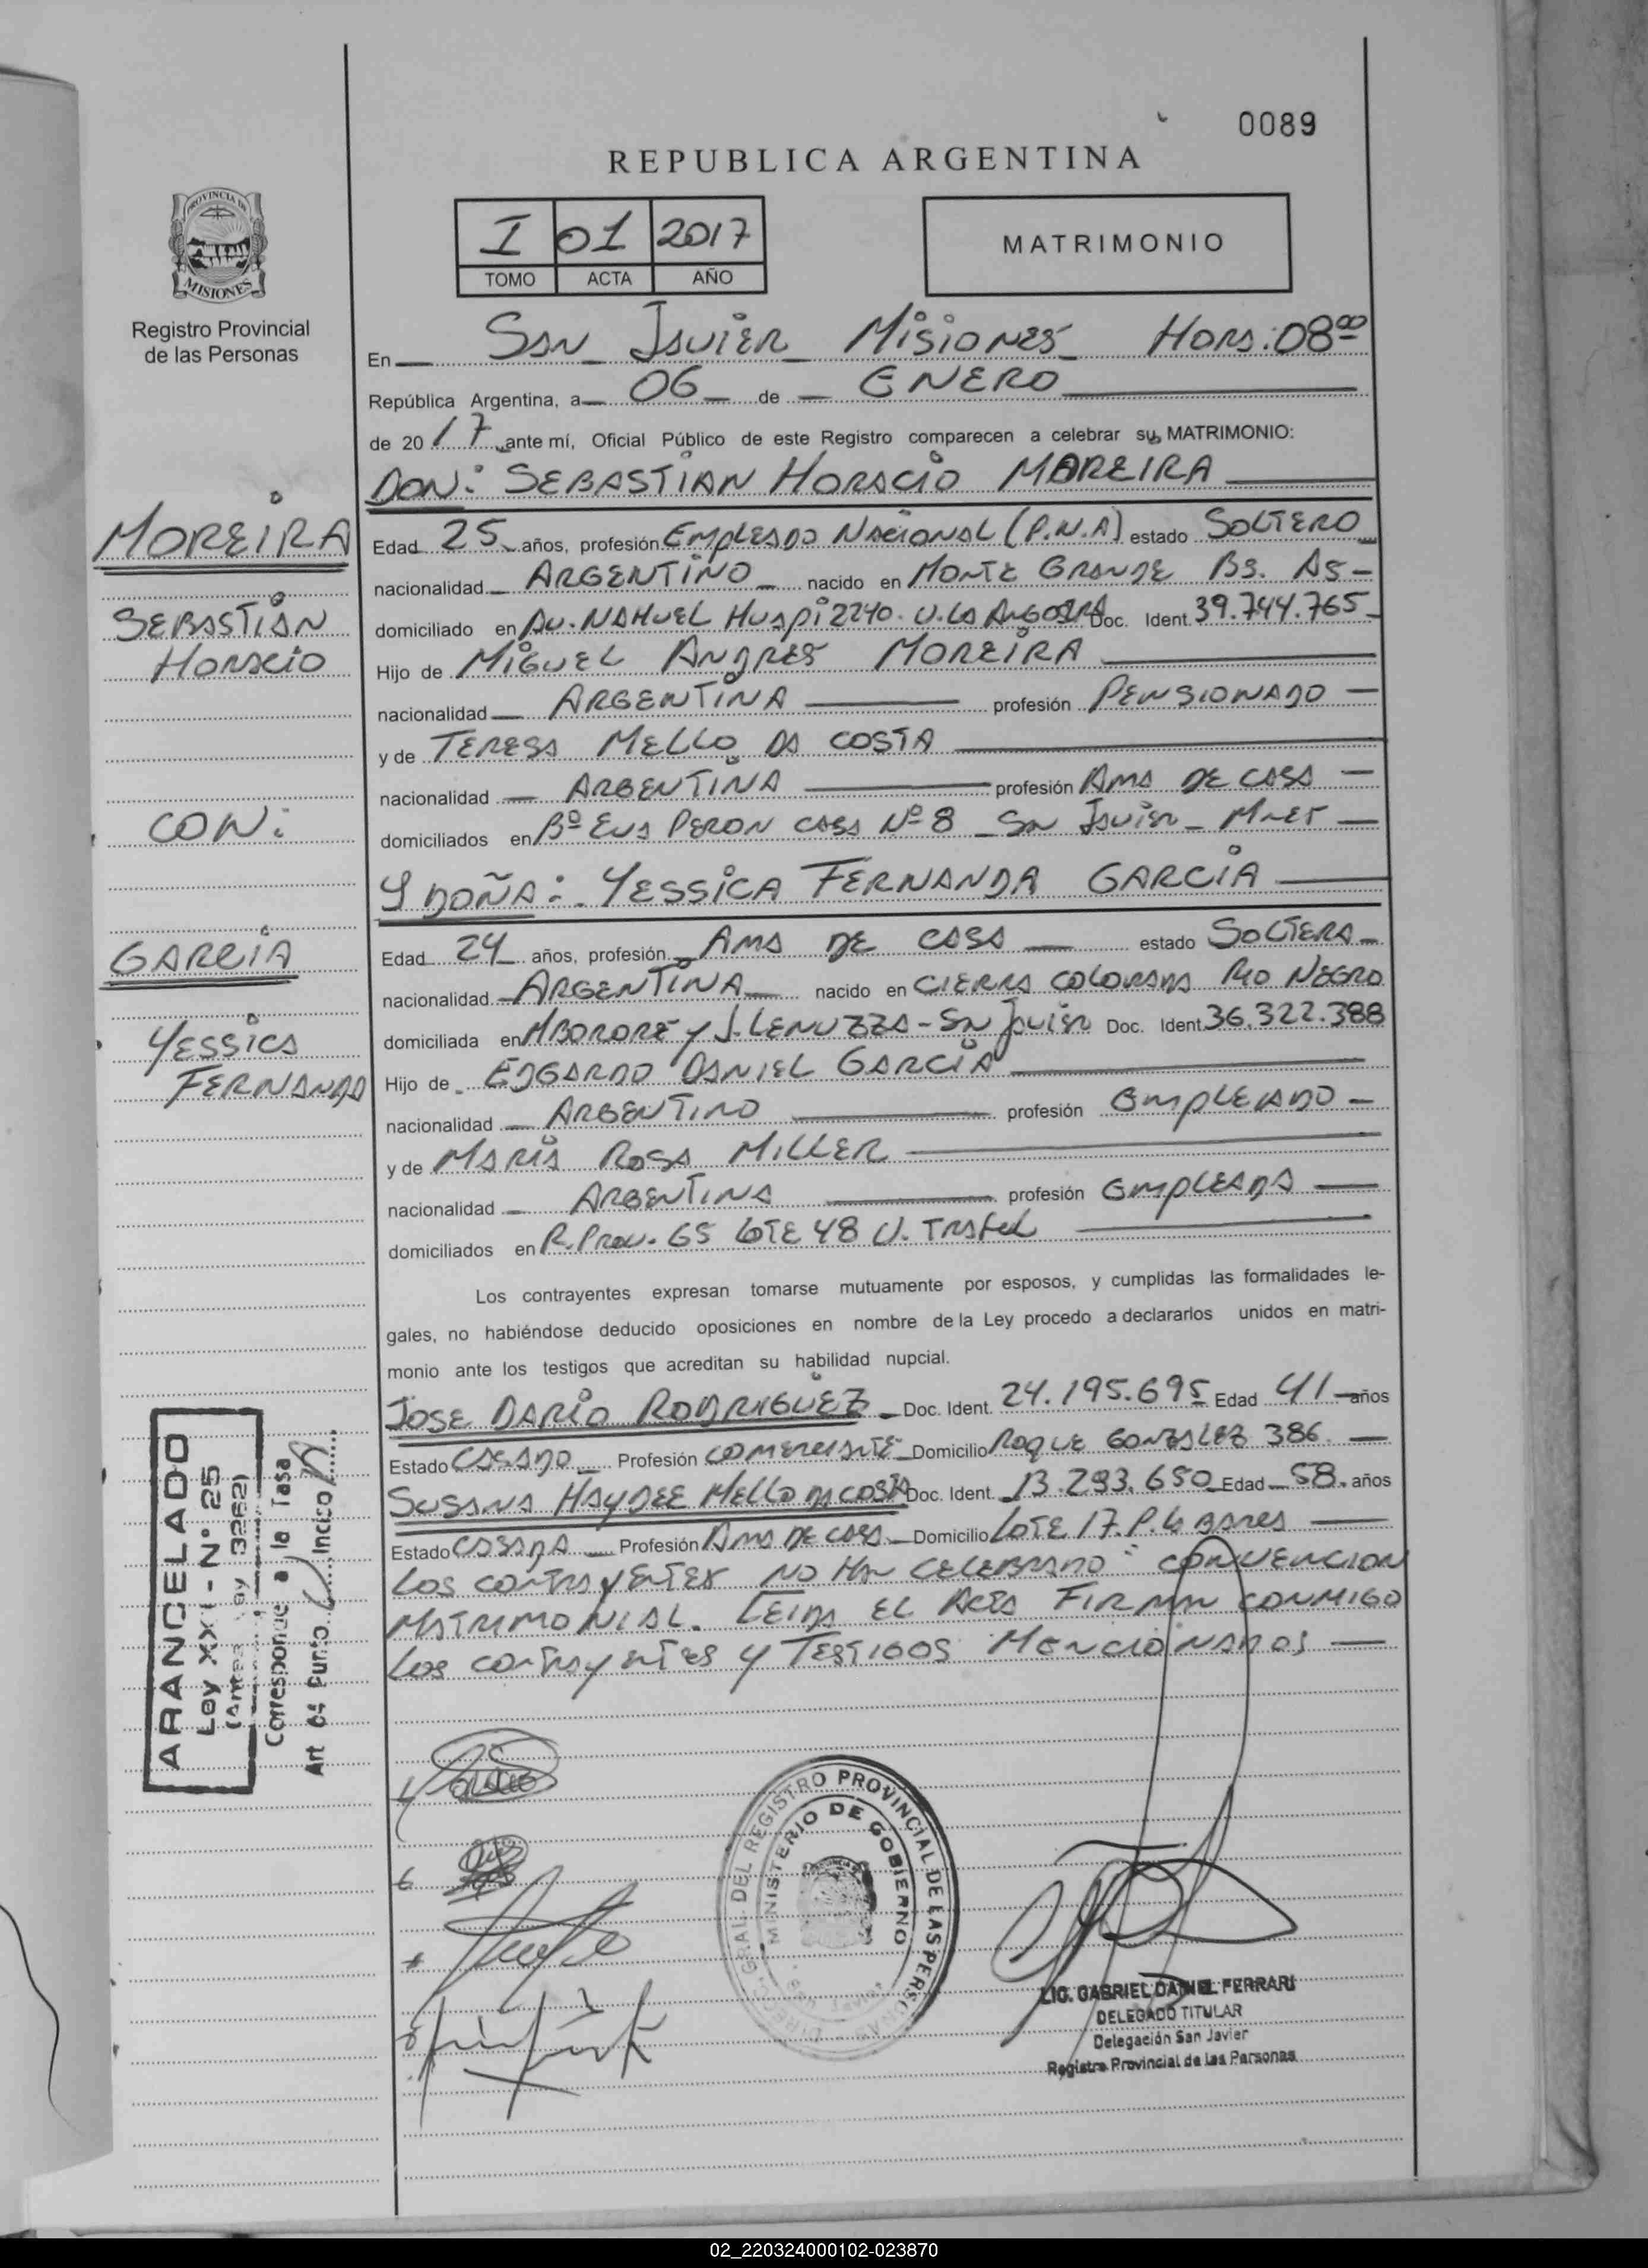 0089
REPUBLICA ARGENTINA
I 01 2017
TOMO ACTA AÑO
MATRIMONIO
PROVINCIA DE
MISIONES
Registro Provincial
de las Personas
En San Javier Misiones Hors: 08⁰⁰
República Argentina, a 06 de ENERO
de 2017 ante mí, Oficial Público de este Registro comparecen a celebrar su MATRIMONIO:
DON: SEBASTIAN HORACIO MOREIRA
MOREIRA
SEBASTIÁN
HORACIO
CON:
GARCIA
YESSICA
FERNANDA
Edad 25 años, profesión EMPLEADO NACIONAL (P.N.A) estado SOLTERO
nacionalidad ARGENTINO nacido en MONTE GRANDE BS. AS
domiciliado en AV. NAHUEL HUAPI 2240. V. LA ANGOSTRA Doc. Ident. 39.744.765
Hijo de MIGUEL ANDRES MOREIRA
nacionalidad ARGENTINA profesión PENSIONADO
y de TERESA MELLO DA COSTA
nacionalidad ARGENTINA profesión AMA DE CASA
domiciliados en Bº EVA PERON CASA Nº 8 San Javier
Y DOÑA: YESSICA FERNANDA GARCIA
Edad 24 años, profesión AMA DE CASA estado SOLTERA
nacionalidad ARGENTINA nacido en CIERRA COLORADA RIO NEGRO
domiciliada en MBORORE y J. LENUZZA - San Javier Doc. Ident. 36.322.388
Hijo de EDGARDO DANIEL GARCIA
nacionalidad ARGENTINO profesión EMPLEADO
y de MARIA ROSA MILLER
nacionalidad ARGENTINA profesión EMPLEADA
domiciliados en R. Prov. 65 LOTE 48 V. Traful
Los contrayentes expresan tomarse mutuamente por esposos, y cumplidas las formalidades le-
gales, no habiéndose deducido oposiciones en nombre de la Ley procedo a declararlos unidos en matri-
monio ante los testigos que acreditan su habilidad nupcial.
JOSE DARIO RODRIGUEZ Doc. Ident. 24.195.695 Edad 41 años
Estado CASADO Profesión COMERCIANTE Domicilio ROQUE GONZALEZ 386
SUSANA HAYDEE MELLO DA COSTA Doc. Ident. 13.293.650 Edad 58 años
Estado CASADA Profesión AMA DE CASA Domicilio LOTE 17. P.
LOS CONTRAYENTES NO HAN CELEBRADO CONVENCION
MATRIMONIAL. LEIDA EL ACTA FIRMAN CONMIGO
LOS CONTRAYENTES Y TESTIGOS MENCIONADOS
ARANCELADO
Ley XXI - Nº 25
(Antes Ley 3262)
Corresponde a la Tasa
Art 04 Punto Inciso
DIRECC. GRAL. DEL REGISTRO PROVINCIAL DE LAS PERSONAS
MINISTERIO DE GOBIERNO
LIC. GABRIEL DANIEL FERRARI
DELEGADO TITULAR
Delegación San Javier
Registro Provincial de las Personas
02_220324000102-023870